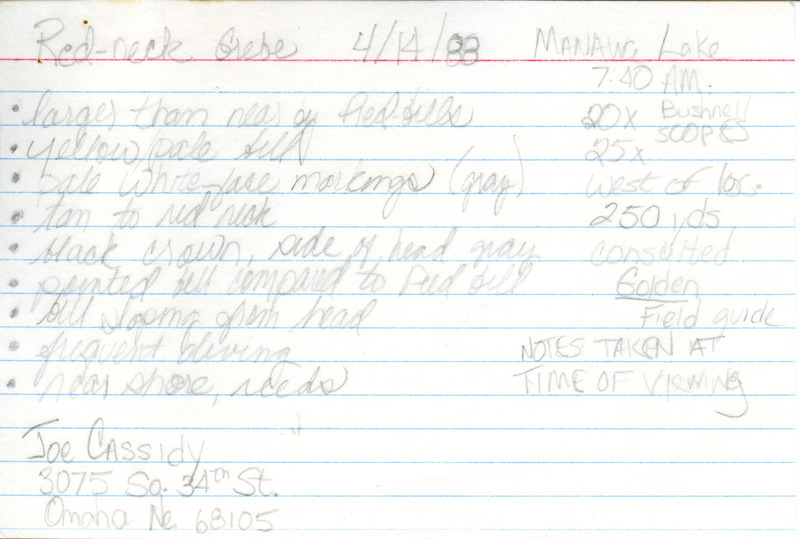 Red-neck Grebe 4/14/83 Manawa Lake
7:40 AM
• larger than near by Pied-bills
• yellow/pale bill
• pale white face markings (gray)
• tan to red neck
• black crown, side of head gray
• pointed bill compared to Pied bill
• bill sloping from head
• frequent diving
• near shore, reeds
20x Bushnell
25x SCOPES
West of loc.
250 yds
consulted
Golden
Field guide
NOTES TAKEN AT
TIME OF VIEWING
Joe Cassidy
3075 So. 34th St.
Omaha Ne. 68105